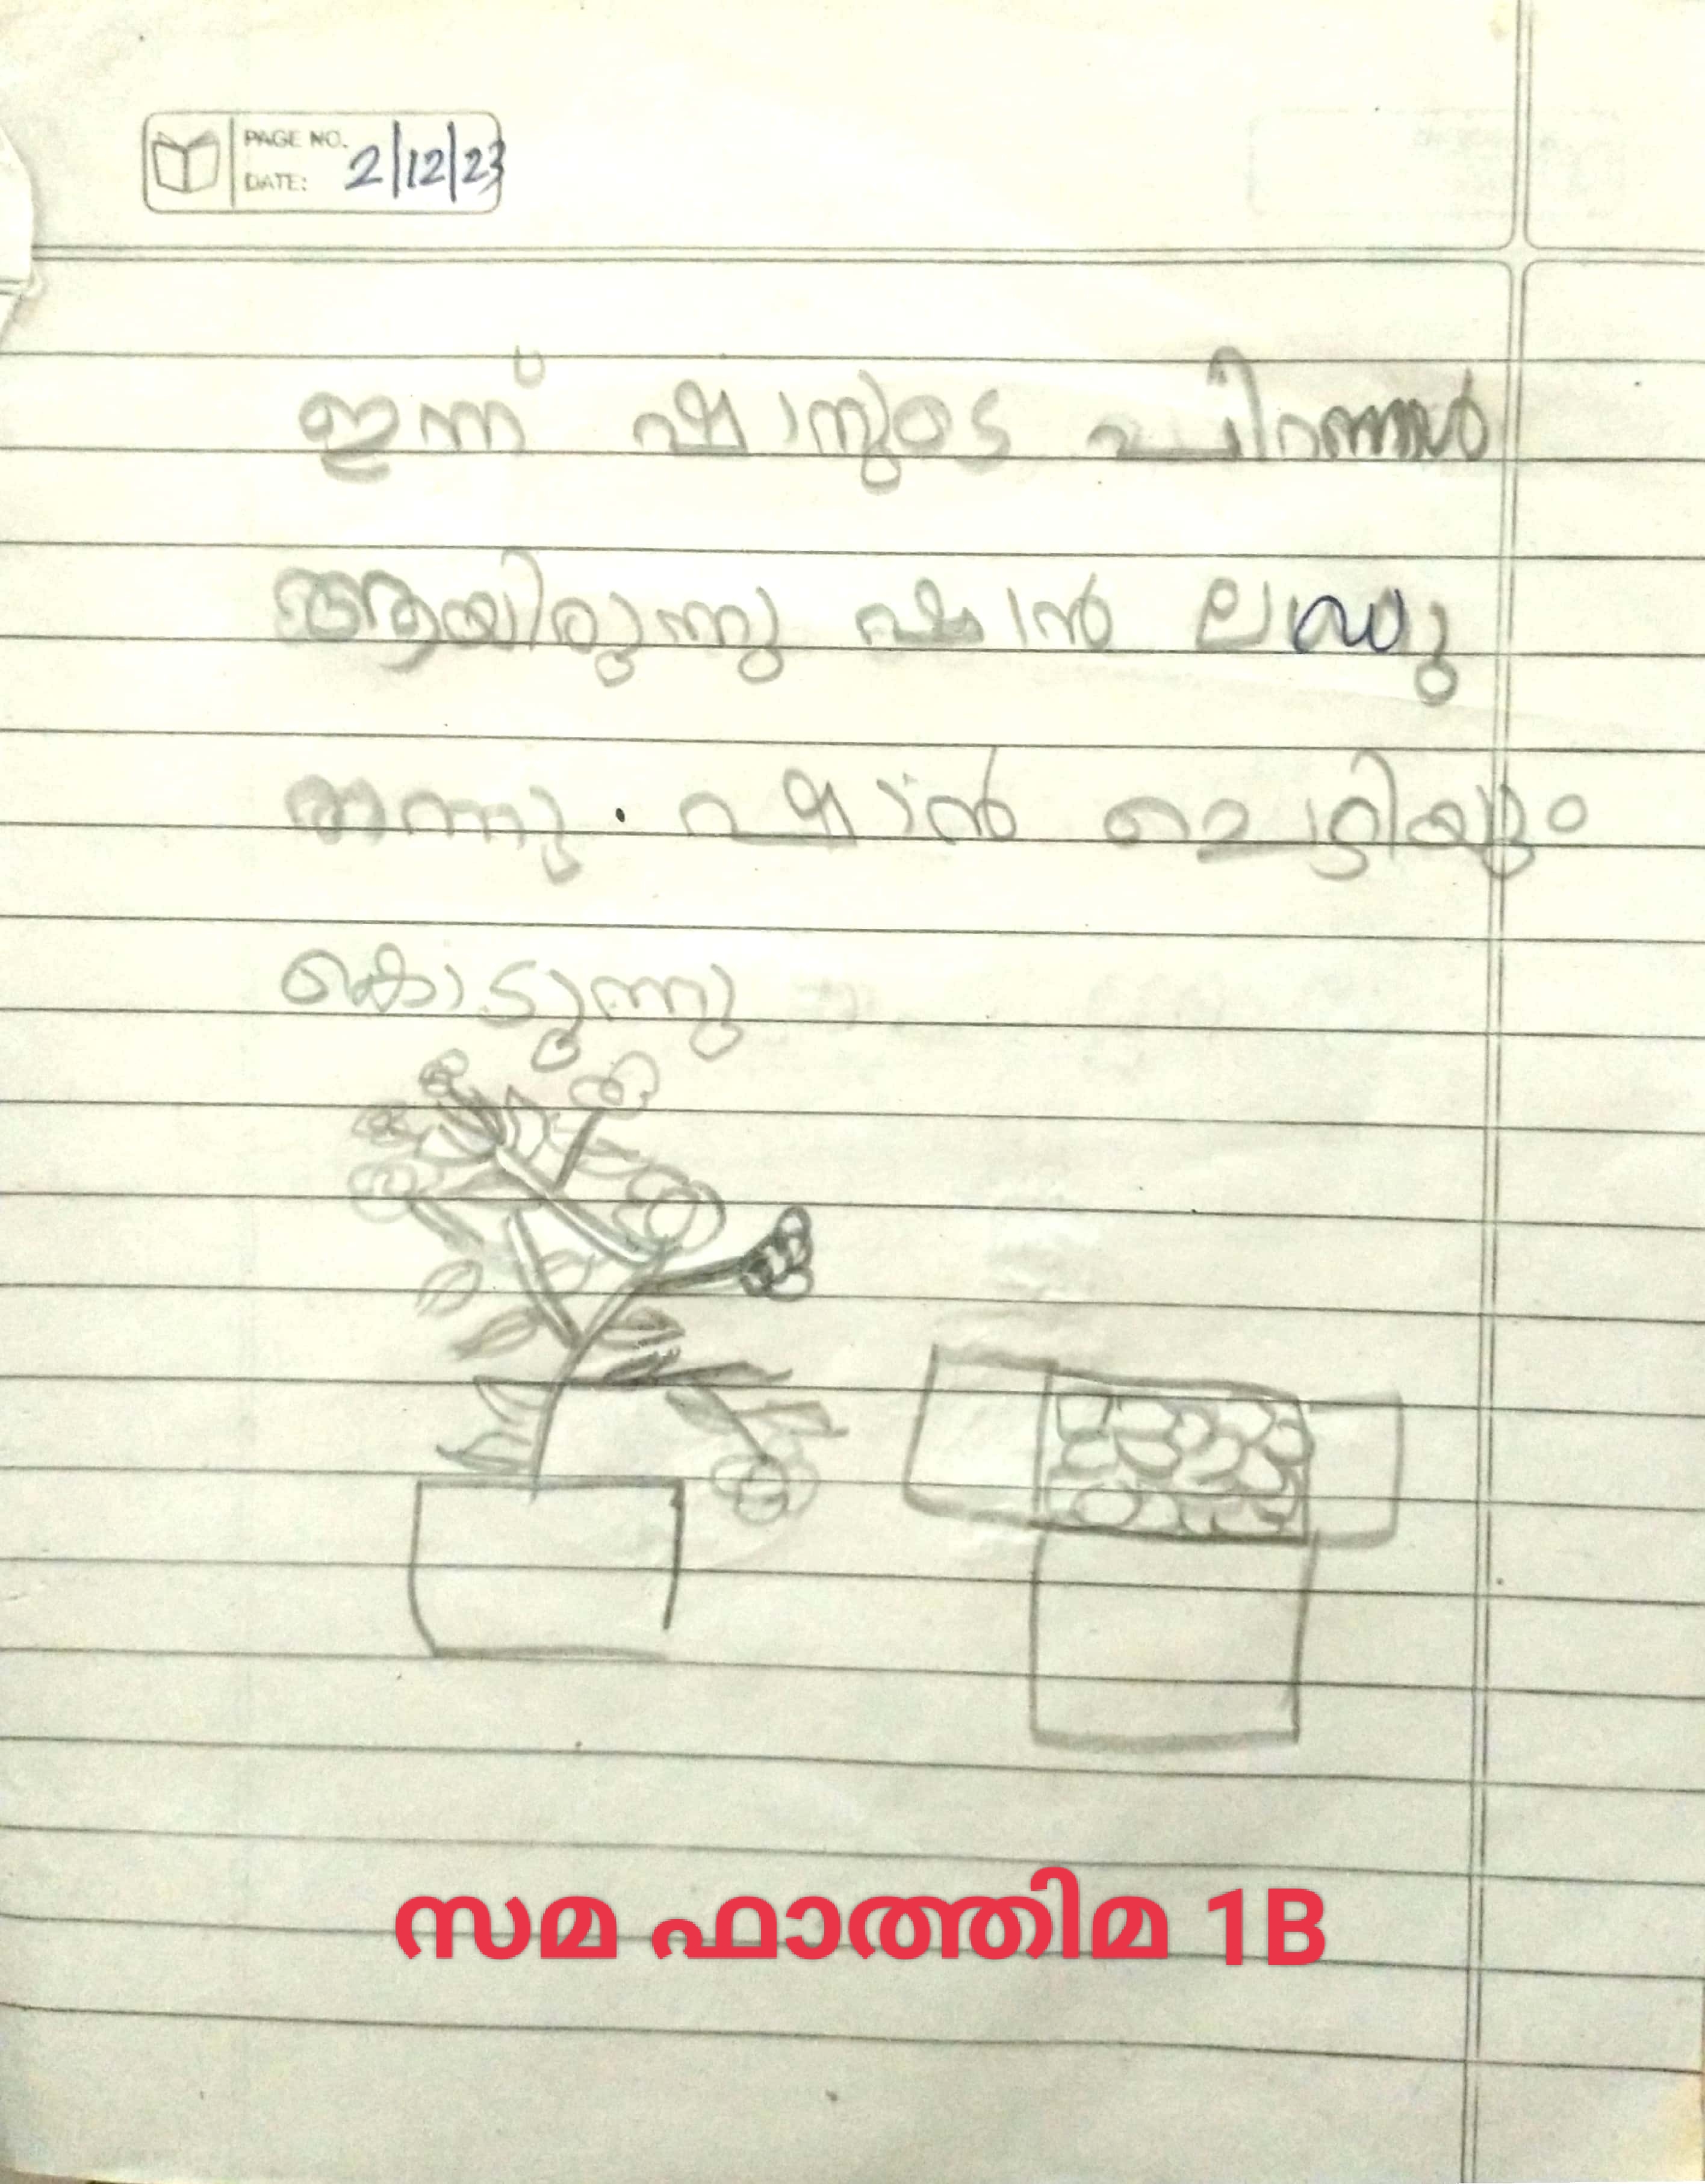 PAGE NO.
DATE: 2/12/23
ഇന്ന് ഷാനുടെ പിറന്നാൾ
ആയിരുന്നു ഷാൻ ലഡു
തന്നു. ഷാൻ ചെടിയും
കൊടുന്നു
സമ ഫാത്തിമ 1B